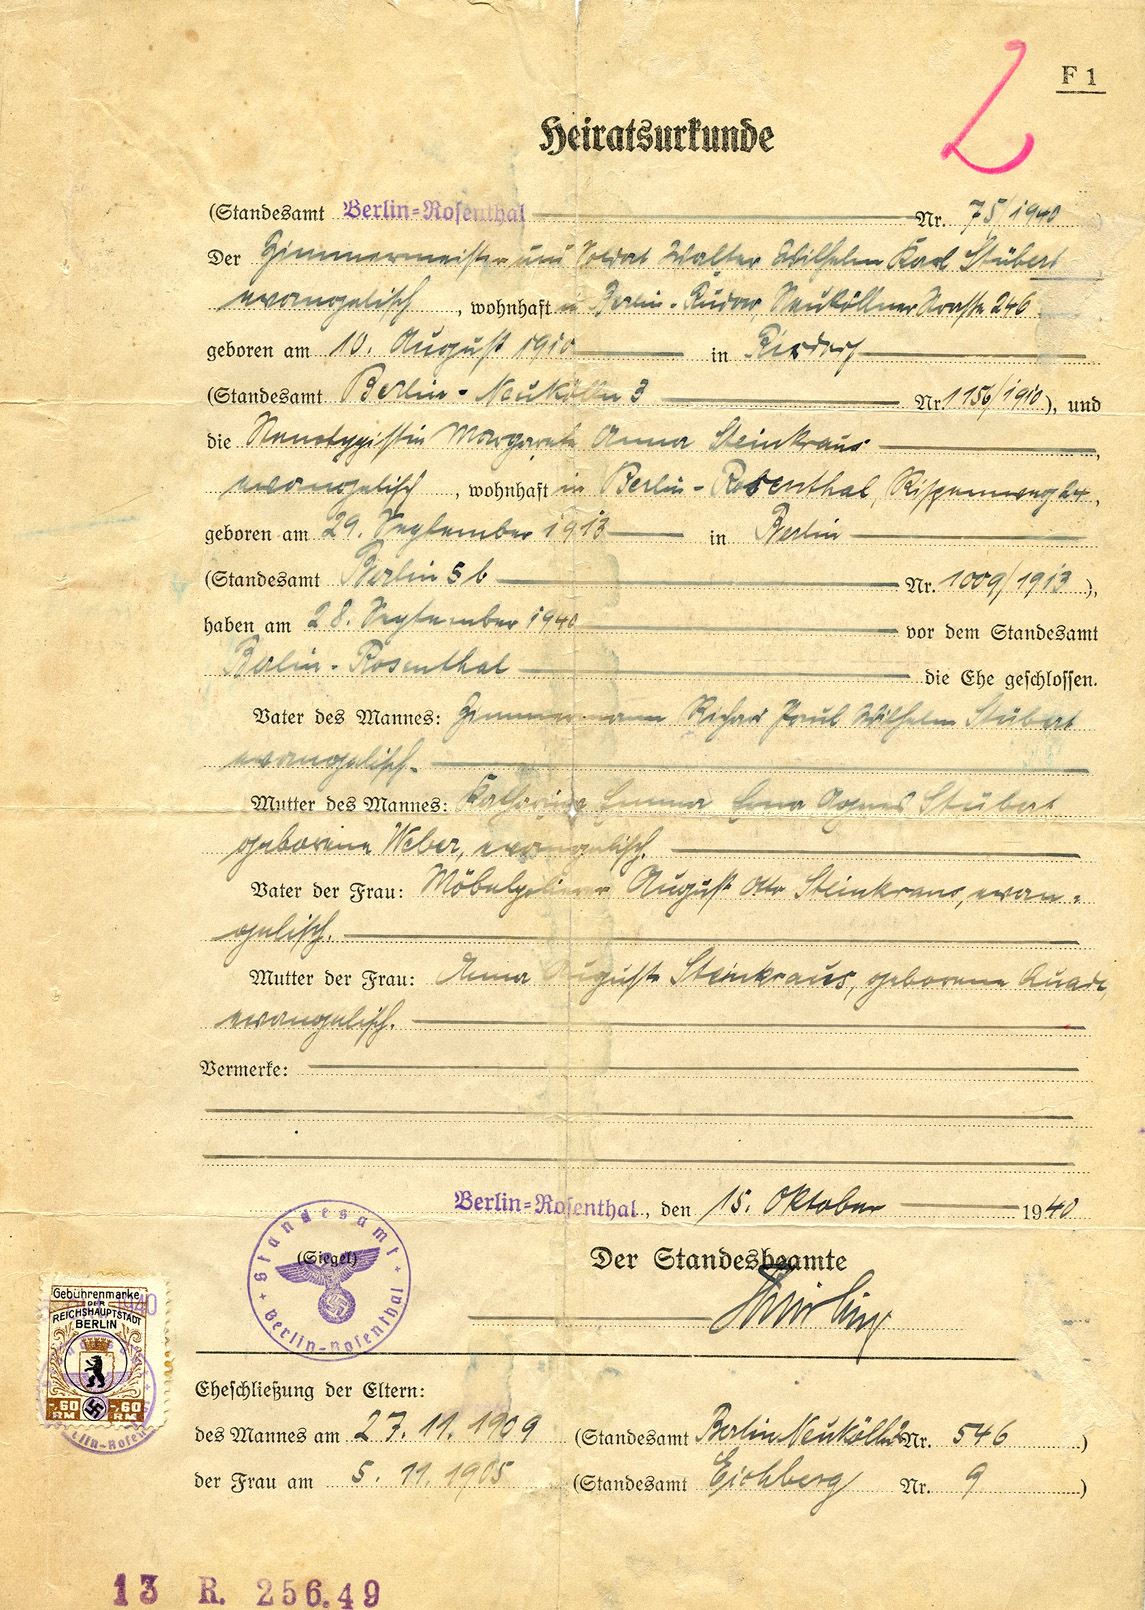 F 1
2
Heiratsurkunde
(Standesamt Berlin=Rosenthal Nr. 75/1940 )
Der Zimmermeister und Soldat Walter Wilhelm Karl Stübert
evangelisch, wohnhaft in Berlin-Rudow, Neuköllner Straße 246
geboren am 10. August 1910 in Rixdorf
(Standesamt Berlin-Neukölln 3 Nr. 1156/1910), und
die Stenotypistin Margarete Anna Steinkraus,
evangelisch, wohnhaft in Berlin-Rosenthal,
geboren am 29. September 1913 in Berlin
(Standesamt Berlin 5b Nr. 1009/1913),
haben am 28. September 1940 vor dem Standesamt
Berlin-Rosenthal die Ehe geschlossen.
Vater des Mannes: Zimmermann Richard Paul Wilhelm Stübert
evangelisch.
Mutter des Mannes: Katharina Emma Agnes Stübert
geborene Weber, evangelisch.
Vater der Frau: August Otto Steinkraus, evan-
gelisch.
Mutter der Frau: Anna Auguste Steinkraus, geborene Quade,
evangelisch.
Vermerke:
Berlin=Rosenthal, den 15. Oktober 1940
Standesamt Berlin-Rosenthal
(Siegel)
Der Standesbeamte
Gebührenmarke
DER
REICHSHAUPTSTADT
BERLIN
-.60 RM -.60 RM
Eheschließung der Eltern:
des Mannes am 27.11.1909 (Standesamt Berlin Neukölln Nr. 546 )
der Frau am 5.11.1905 (Standesamt Eichberg Nr. 9 )
13 R. 256.49